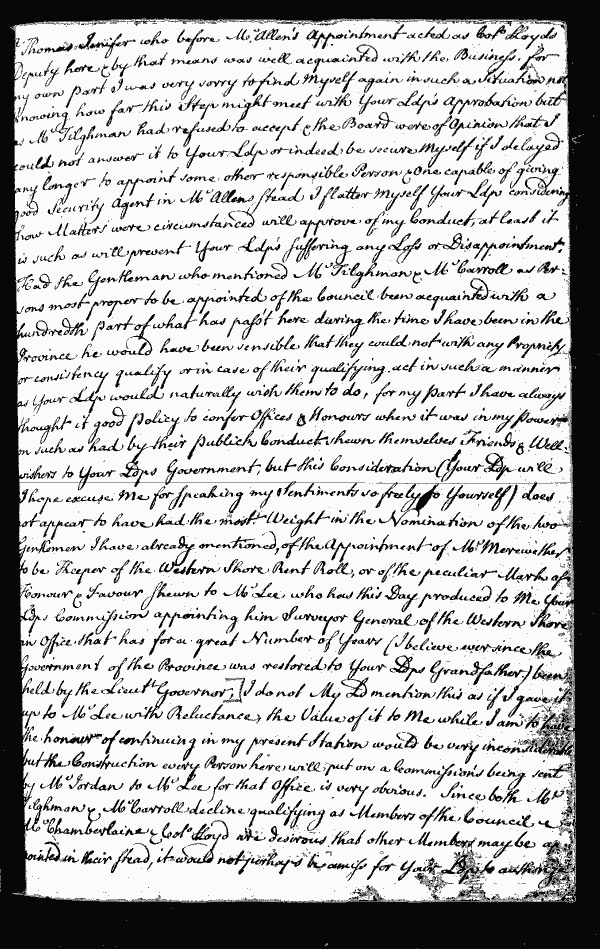 Thomas Jenifer who before Mr Allen's Appointment acted as Colo Lloyds
Deputy here & by that means was well acquainted with the Business. For
my own part I was very sorry to find Myself again in such a Situation not
knowing how far this Step might meet with Your Ldp's Approbation but
as Mr Tilghman had refused to accept & the Board were of Opinion that I
could not answer it to Your Ldp or indeed be secure Myself if I delayed
any longer to appoint some other responsible Person & One capable of giving
good Security Agent in Mr Allens stead I flatter Myself Your Ldp considering
how Matters were circumstanced will approve of my Conduct, at least it
is such as will prevent Your Ldp's suffering any Loss or Disappointment.
Had the Gentleman who mentioned Mr Tilghman & Mr Carroll as Per-
sons most proper to be appointed of the Council been acquainted with a
hundredth part of what has passt here during the time I have been in the
Province he would have been sensible that they could not with any Propriety
or consistency qualify or in case of their qualifying act in such a manner
as Your Ldp would naturally wish them to do, for my part I have always
thought it good Policy to confer Offices & Honours when it was in my Power
on such as had by their publick Conduct shewn themselves Friends & Well-
wishers to Your Ldps Government, but this Consideration (Your Ldp will
I hope excuse Me for speaking my Sentiments so freely to Yourself) does
not appear to have had the most Weight in the Nomination of the two
Gentlemen I have already mentioned, of the Appointment of Mr Merewether
to be Keeper of the Western Shore Rent Roll, or of the peculiar Mark of
Honour & Favour shewn to Mr Lee who has this Day produced to Me Your
Ldps Commission appointing him Surveyor General of the Western Shore
an Office that has for a great Number of Years (I believe ever since the
Government of the Province was restored to Your Ldps Grandfather) been
held by the Lieutt Governor, I do not My Ld mention this as if I gave it
up to Mr Lee with Reluctance, the Value of it to Me while I am to have
the honour of continuing in my present Station would be very inconsiderable
but the Construction every Person here will put on a Commission's being sent
by Mr Jordan to Mr Lee for that Office is very obvious. Since both Mr
Tilghman & Mr Carroll decline qualifying as Members of the Council &
Mr Chamberlaine & Colo Lloyd are desirous that other Members may be ap
pointed in their stead, it would not perhaps be amiss for Your Ldp to authorize